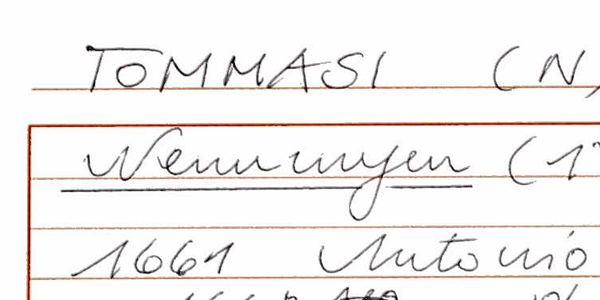 TOMMASI (N,
Wemmingen (1
1661 Antonio